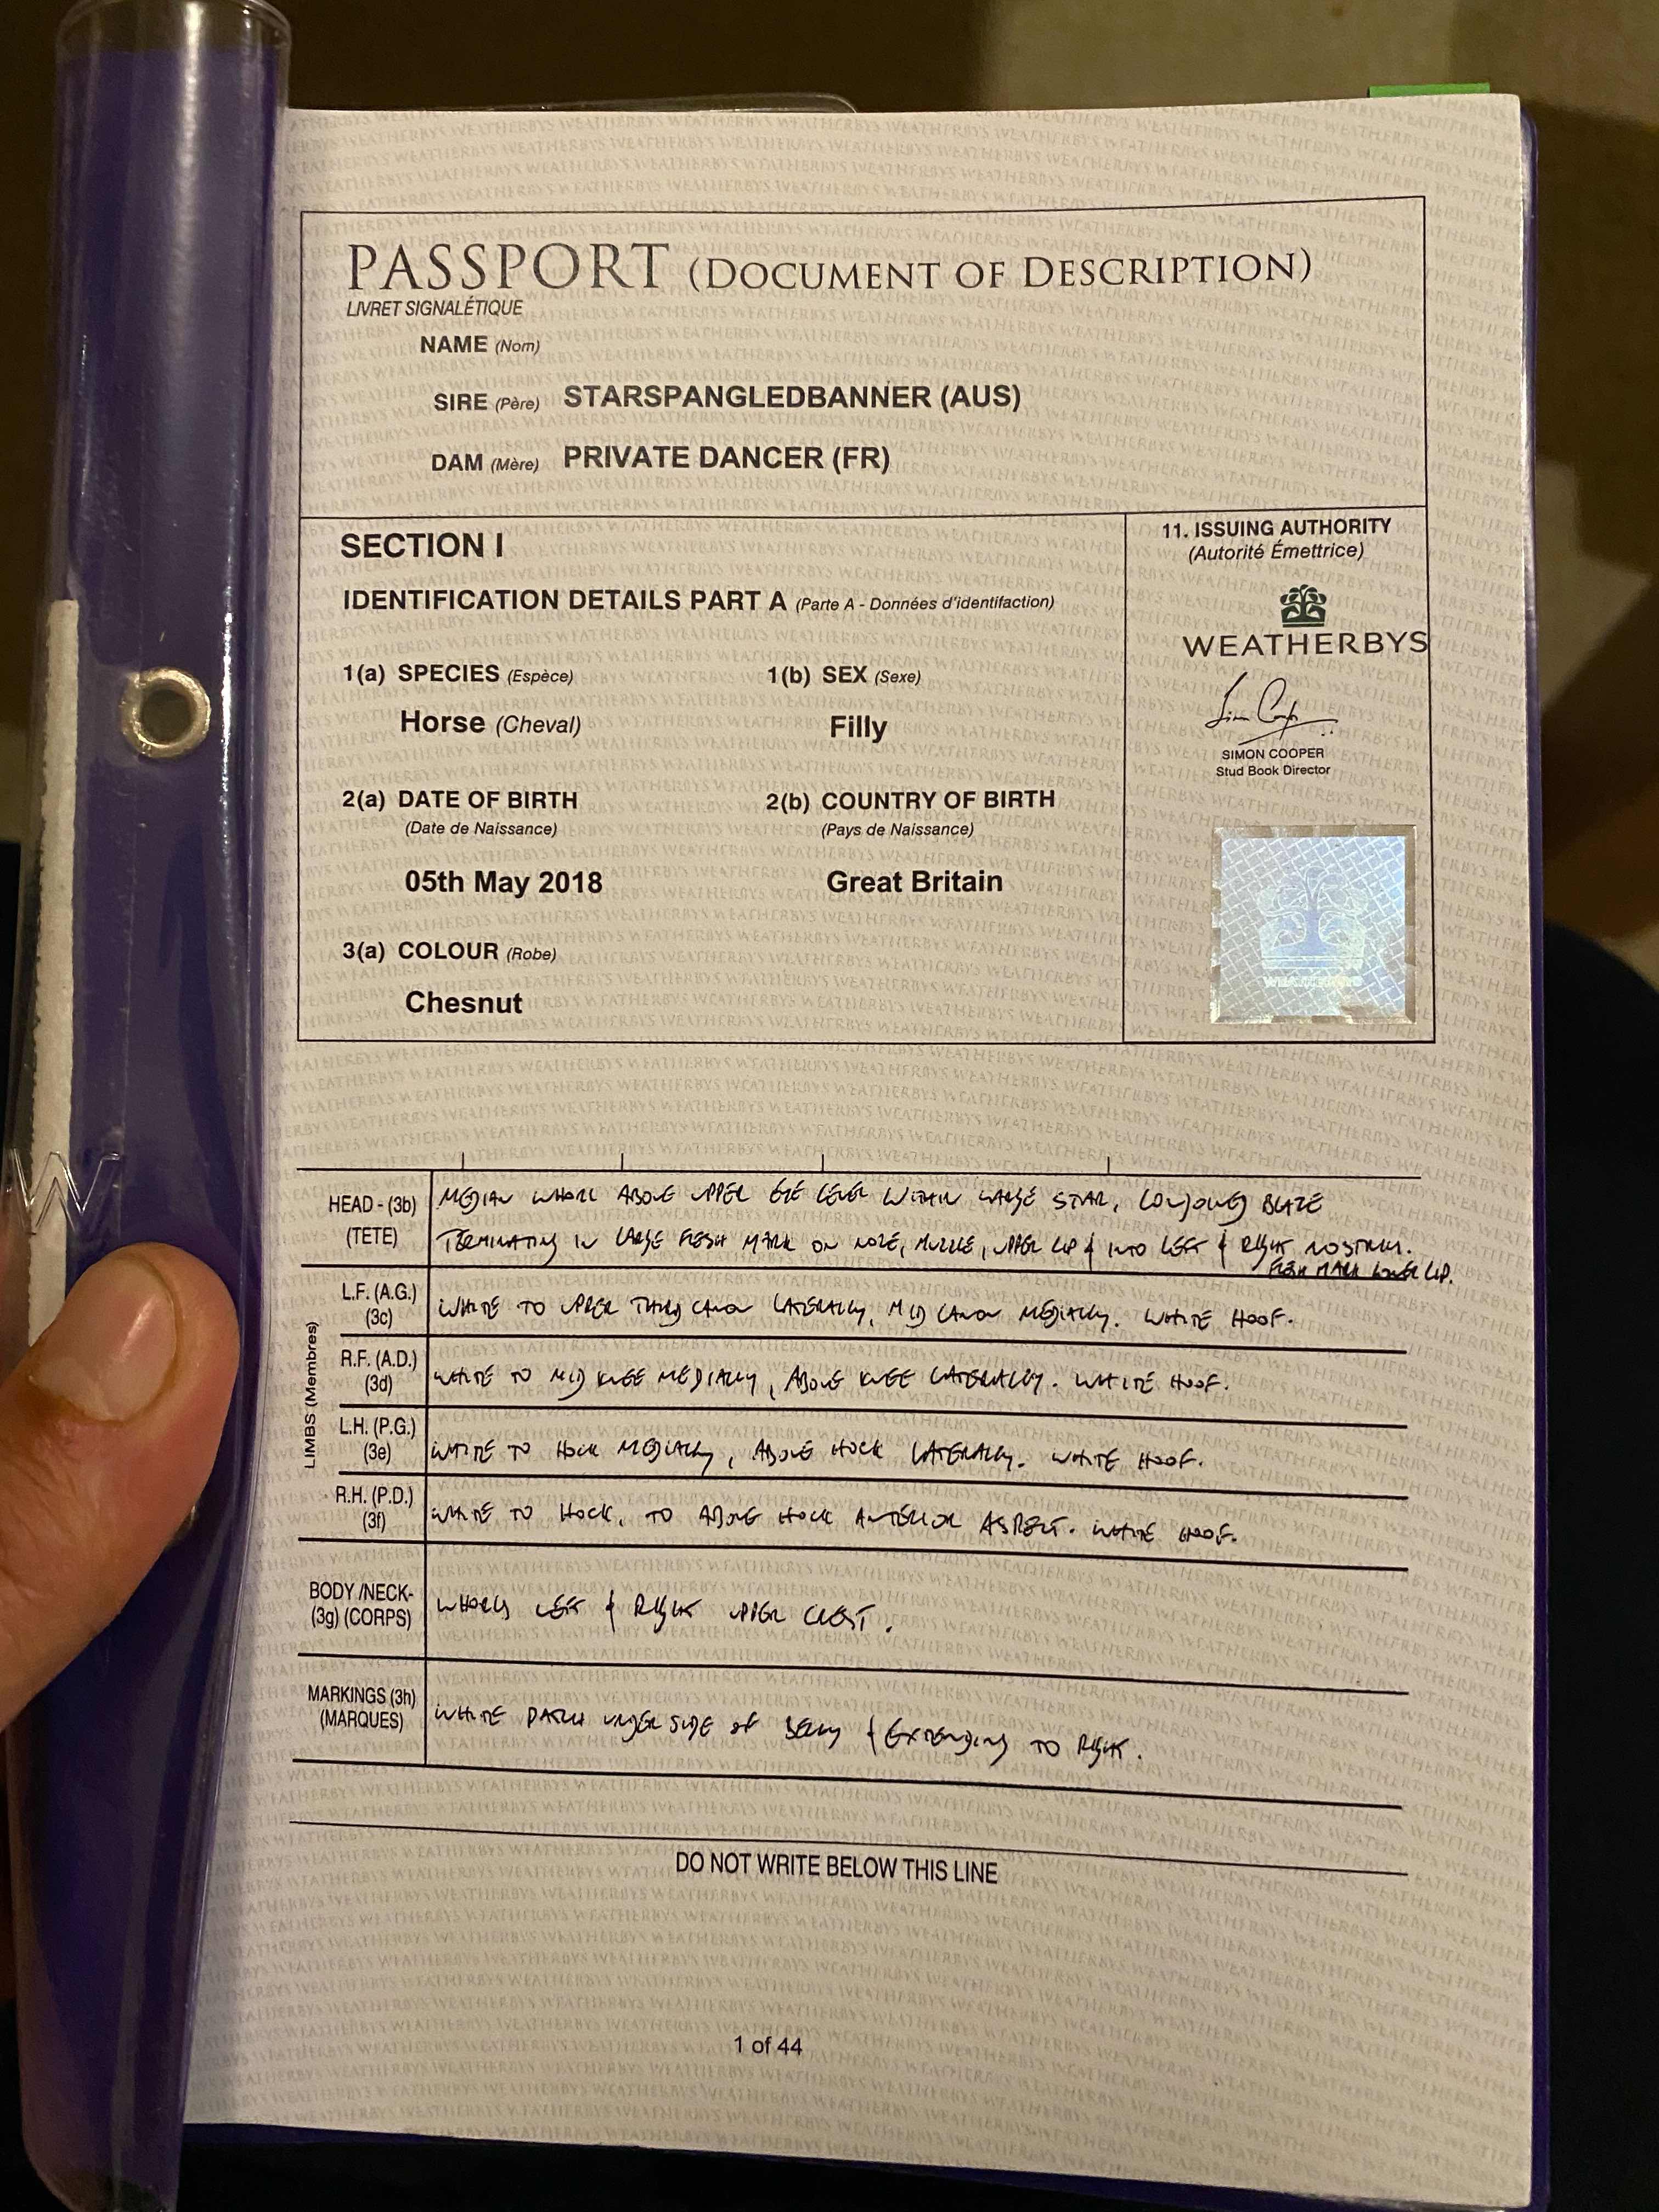 PASSPORT (DOCUMENT OF DESCRIPTION)
LIVRET SIGNALÉTIQUE
NAME (Nom)
SIRE (Père) STARSPANGLEDBANNER (AUS)
DAM (Mère) PRIVATE DANCER (FR)
SECTION I
IDENTIFICATION DETAILS PART A (Parte A - Données d'identifaction)
1(a) SPECIES (Espèce) 1(b) SEX (Sexe)
Horse (Cheval) Filly
2(a) DATE OF BIRTH 2(b) COUNTRY OF BIRTH
(Date de Naissance) (Pays de Naissance)
05th May 2018 Great Britain
3(a) COLOUR (Robe)
Chesnut
11. ISSUING AUTHORITY
(Autorité Émettrice)
WEATHERBYS
Simon Cooper
SIMON COOPER
Stud Book Director
WEATHERBYS
HEAD - (3b) MEDIAN WHORL ABOVE UPPER EYE LEVEL WITHIN LARGE STAR, CONJOINED BLAZE
(TETE) TERMINATING IN LARGE FLESH MARK ON NOSE, MUZZLE, UPPER LIP & INTO LEFT & RIGHT NOSTRILS.
FLESH MARK LOWER LIP.
LIMBS (Membres)
L.F. (A.G.)
(3c) WHITE TO UPPER THIRD CANON LATERALLY, MID CANON MEDIALLY. WHITE HOOF.
R.F. (A.D.)
(3d) WHITE TO MID KNEE MEDIALLY, ABOVE KNEE LATERALLY. WHITE HOOF.
L.H. (P.G.)
(3e) WHITE TO HOCK MEDIALLY, ABOVE HOCK LATERALLY. WHITE HOOF.
R.H. (P.D.)
(3f) WHITE TO HOCK, TO ABOVE HOCK ANTERIOR ASPECT. WHITE HOOF.
BODY /NECK-
(3g) (CORPS) WHORLS LEFT & RIGHT UPPER CREST.
MARKINGS (3h)
(MARQUES) WHITE PATCH UNDERSIDE OF BELLY & EXTENDING TO RIGHT.
DO NOT WRITE BELOW THIS LINE
1 of 44